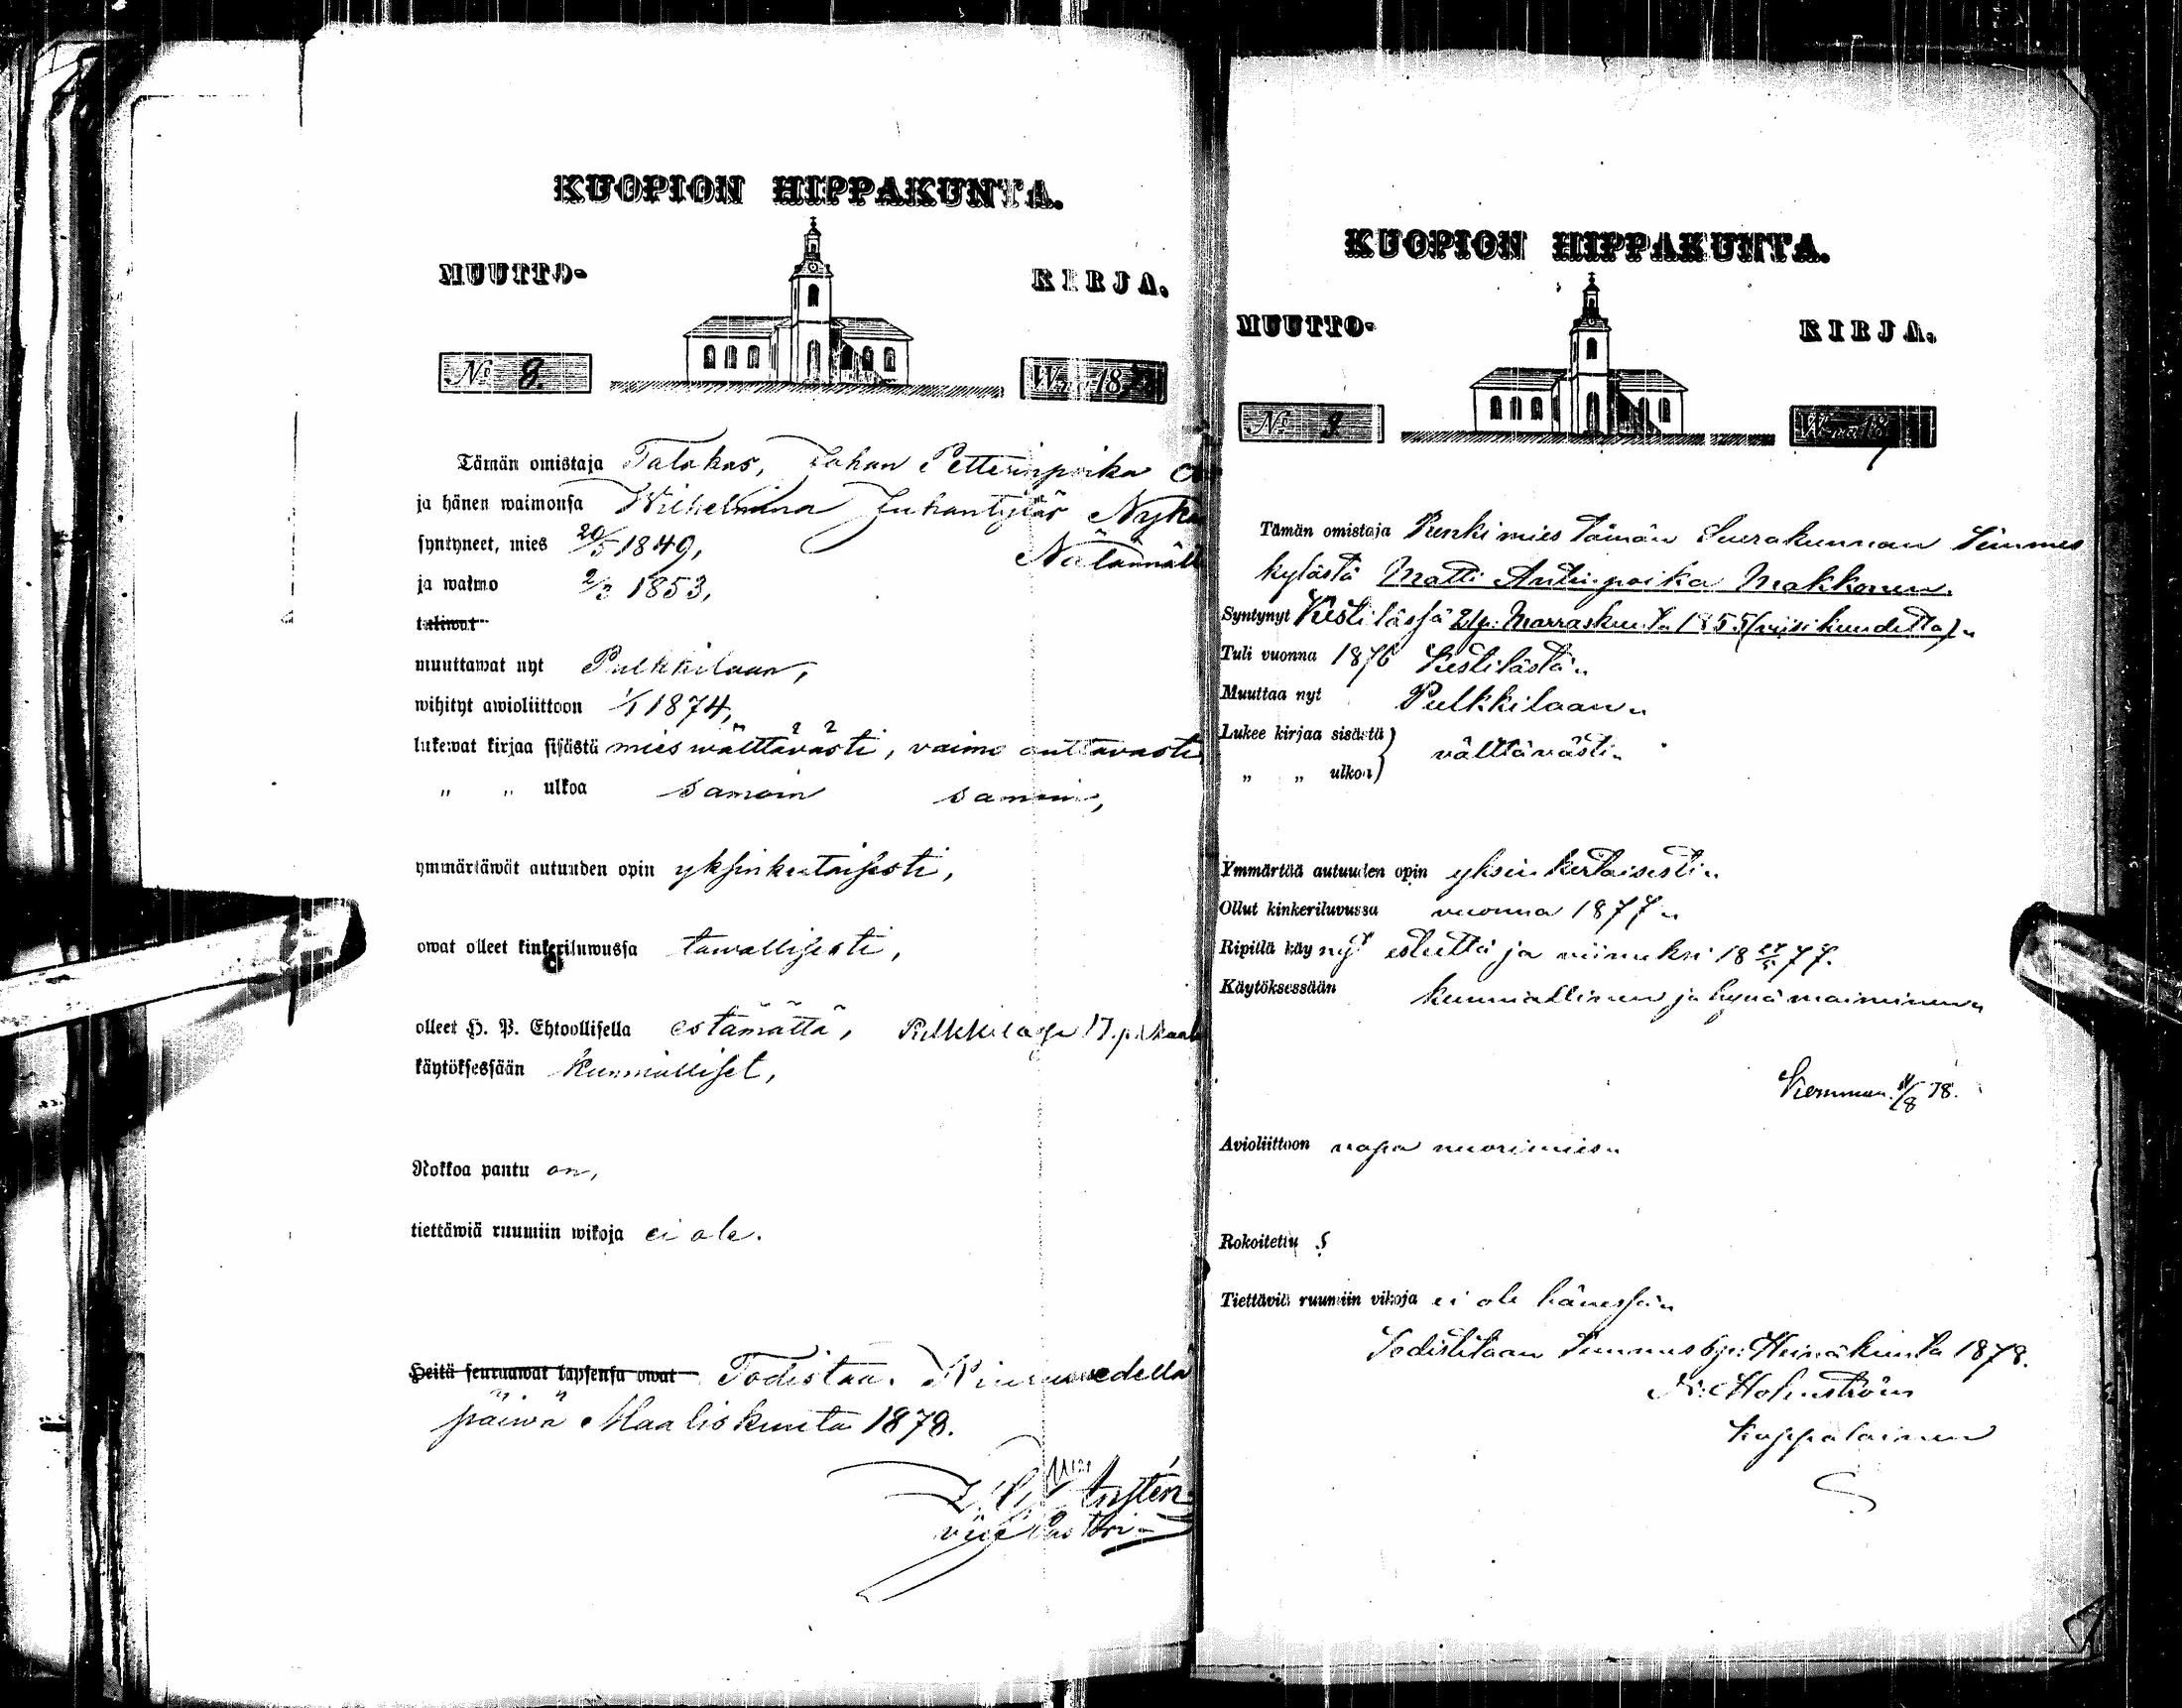 KUOPION HIPPAKUNTA.
MUUTTO- KIRJA.
No 8. W:na 187
Tämän omistaja Talokas, Johan Petterinpoika
ja hänen waimonsa Wilhelmina Juhantytär Nyka
syntyneet, mies 20/5 1849, Nälännäll
ja waimo 2/3 1853,
tuliwat
muuttawat nyt Pulkkilaan,
wihityt awioliittoon 1/1 1874,
lukewat kirjaa sisästä mies wälttävästi, vaimo auttavasti
" " ulkoa samoin samoin,
ymmärtäwät autuuden opin yksinkertaisesti,
owat olleet kinkeriluwussa tawallisesti,
olleet H. P. Ehtoollisella estämättä, Pulkkilassa 17.p.
käytöksessään kunnialliset,
Rokkoa pantu on,
tiettäwiä ruumiin wikoja ei ole.
Heitä seuraawat lapsensa owat Todistaa. Kiuruwedellä
päiwä Maaliskuuta 1878.
vice Pastori
KUOPION HIPPAKUNTA.
MUUTTO- KIRJA.
No 9. W:na 187
Tämän omistaja Renkimies Tämän Seurakunnan
kylästä Matti Antinpoika Makkonen.
Syntynyt Kestilässä 21p: Marraskuuta 1855 (viisikuudetta)„
Tuli vuonna 1876 Kestilästä„
Muuttaa nyt Pulkkilaan„
Lukee kirjaa sisästä } välttävästi„
" " ulkoa }
Ymmärtää autuuden opin yksinkertaisesti„
Ollut kinkeriluvussa vuonna 1877„
Ripillä käynyt esteettä ja viimeksi 18 77.
Käytöksessään kunniallinen ja hyvämaineinen„
78.
Avioliittoon vapa nuorimies„
Rokoitettu
Tiettäviä ruumiin vikoja ei ole hänessään
Todistetaan 6p: Heinäkuuta 1878.
Holmström
Kappalainen